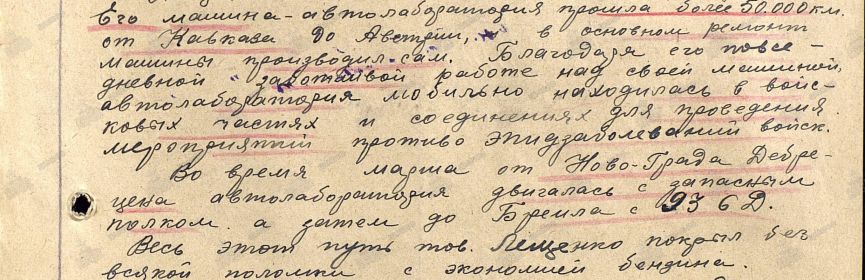 Его машина-автолаборатория прошла более 50.000 км.
от Кавказа до Австрии, и в основном ремонт
машины производил сам. Благодаря его повсе-
дневной заботливой работе над своей машиной,
автолаборатория мобильно находилась в войс-
ковых частях и соединениях для проведения
мероприятий противо эпидзаболеваний войск.
Во время марша от Ново-Града Дебре-
цена автолаборатория двигалась с запасным
полком. а затем до Бреила с 93 6 Д.
Весь этот путь тов. Лещенко покрыл без
всякой поломки с экономией бензина.